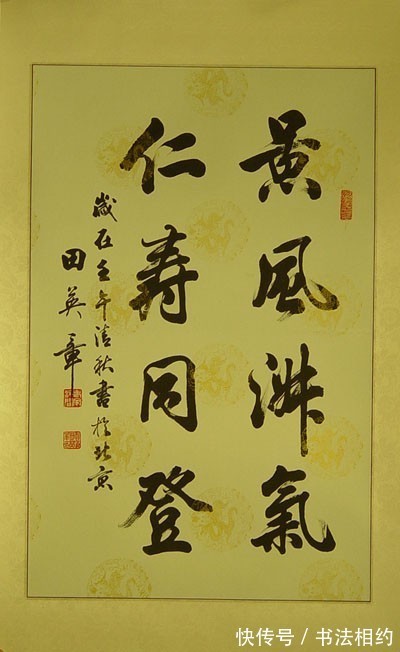 黄風氣
仁寿同登
歲在壬午清秋書於北京
田英章
快传号 / 书法相约